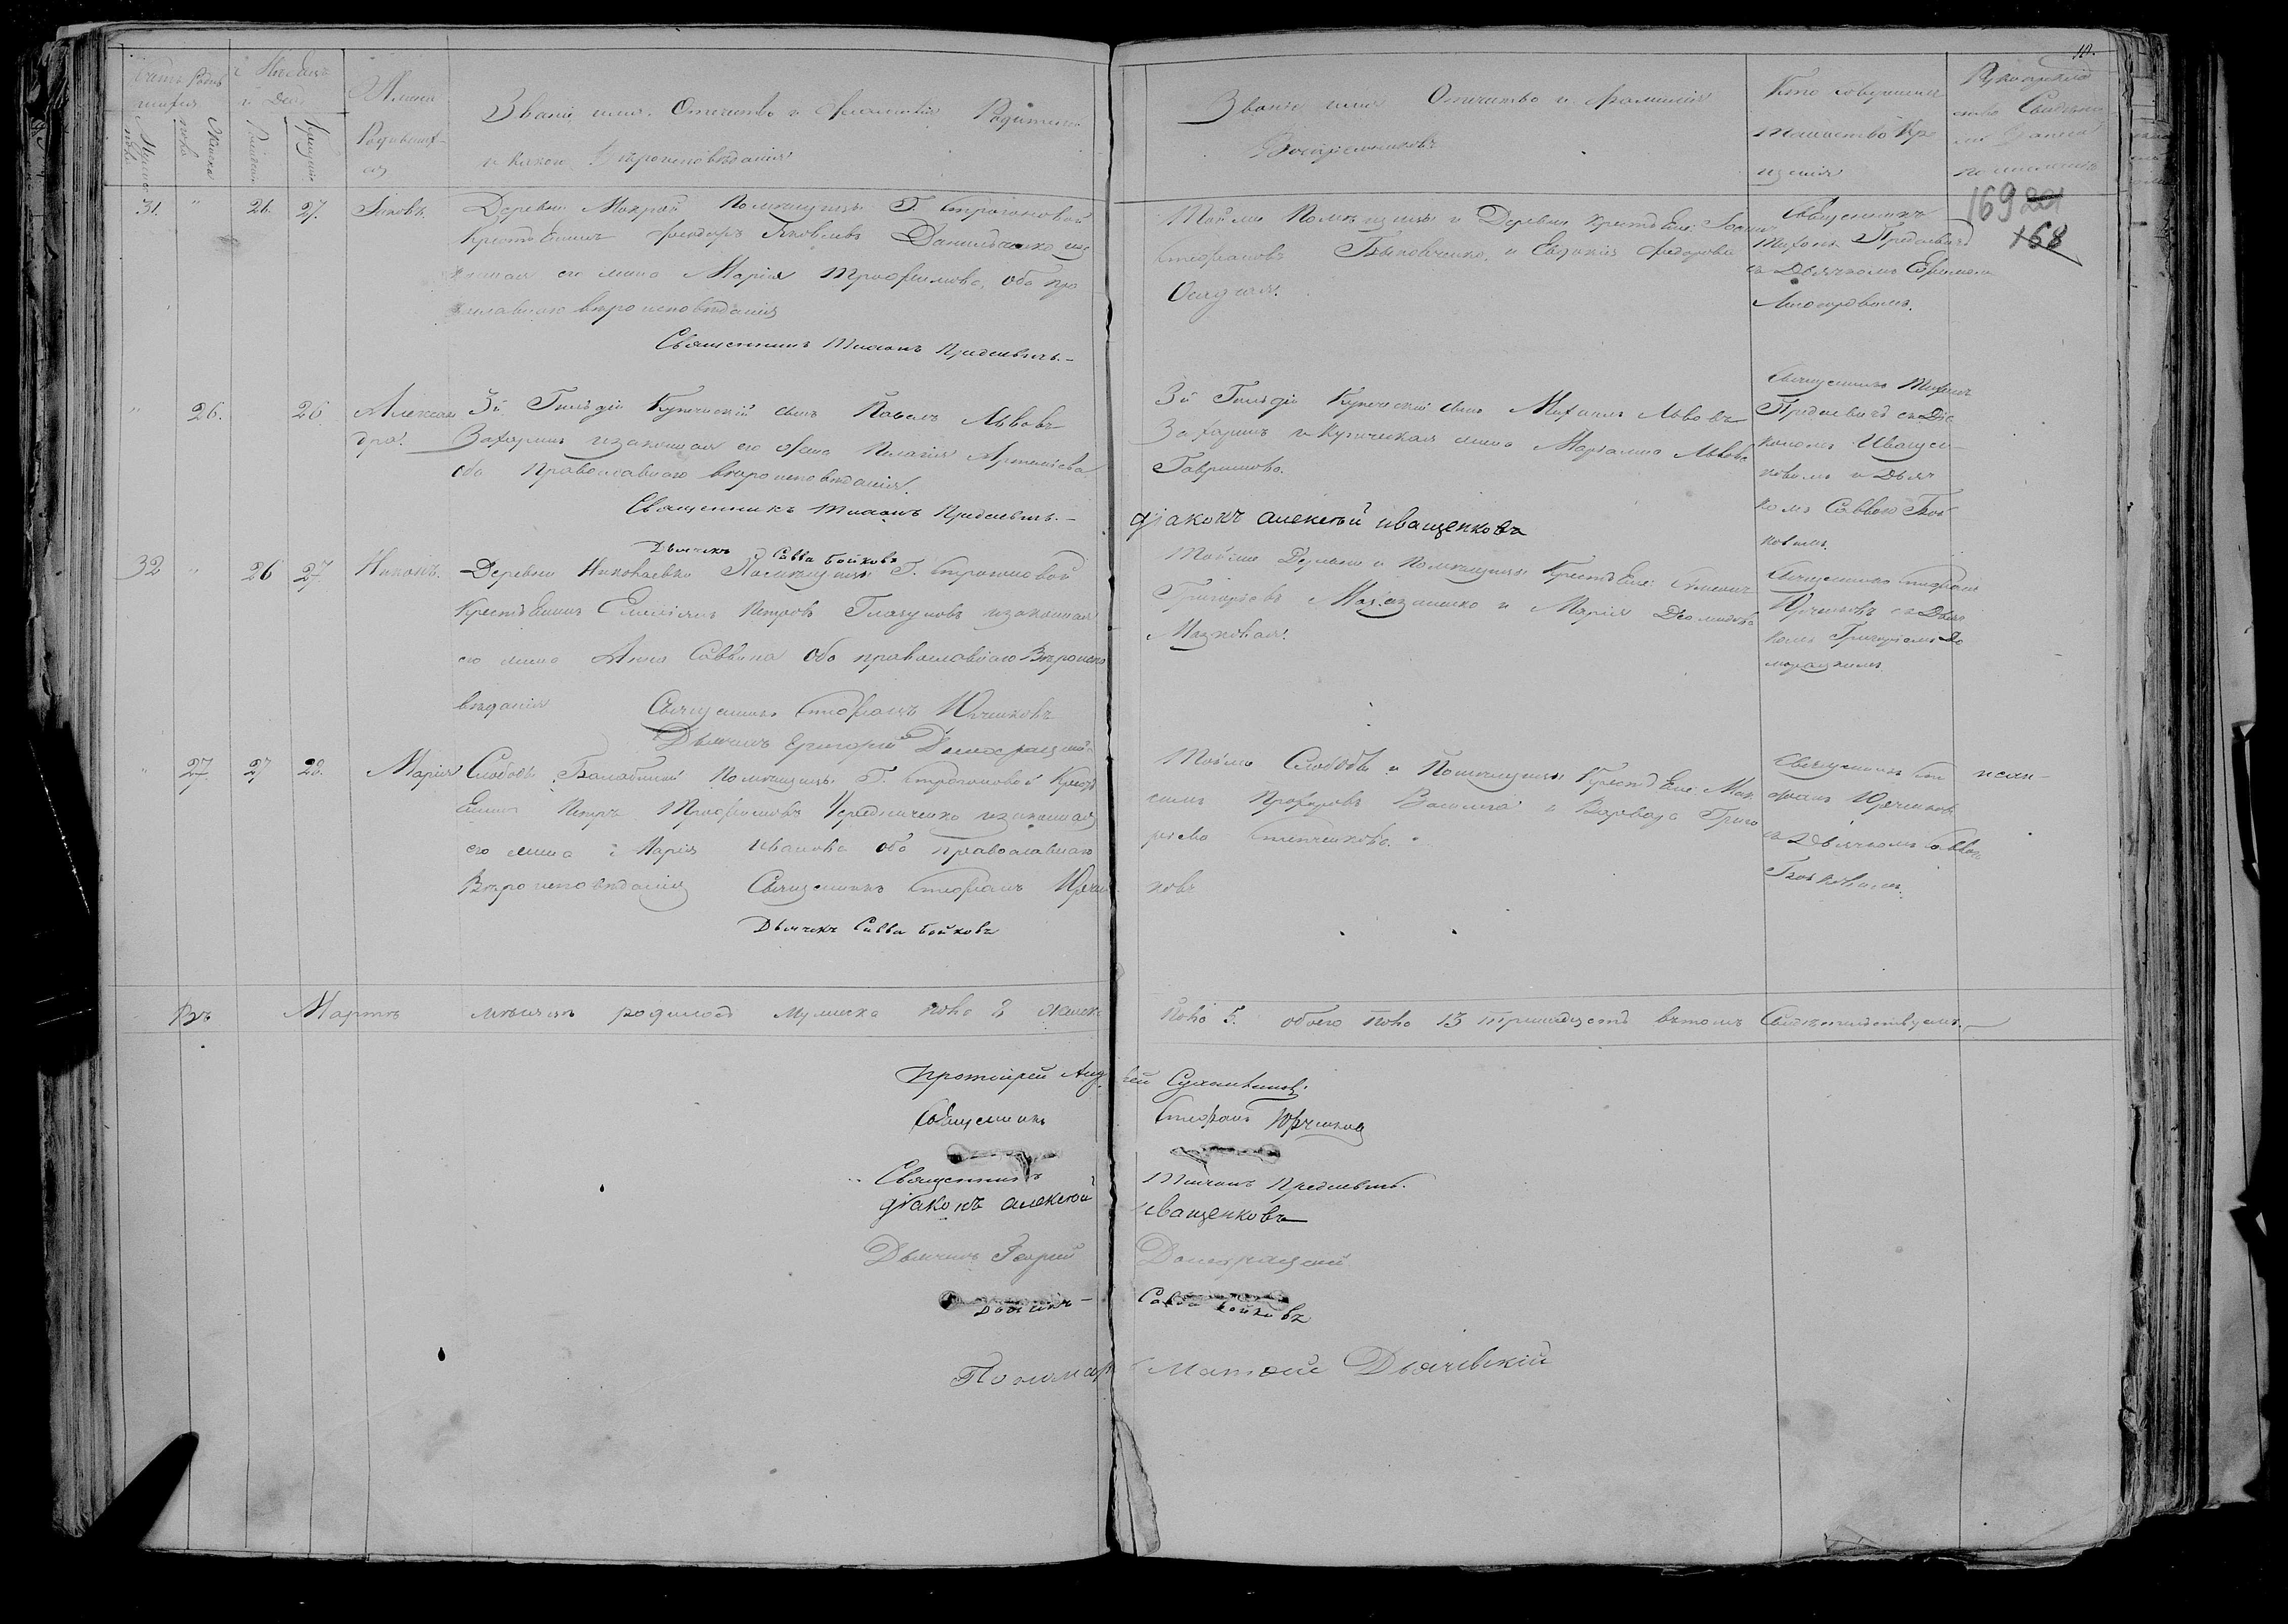 10.
Званіе имя Отечество и Фамилія Родителей
и какого Вѣроисповѣданія
Званіе имя Отечество и Фамилія
Воспріемниковъ
Кто совершалъ
таинство Кре
щенія
169
168
31. " 26. 27. Іаковъ.
Деревни Мокрой Помѣщицы Г. Строгоновой
Крестьянинъ Феодоръ Яковлевъ Данильченко и за
конная его жена Марія Трофимова, оба пра
вославного вѣроисповѣданія
Священникъ Тихонъ Предаевичъ.
Той же Помѣщицы и Деревни Крестьяне: Іоаннъ
Стефановъ Быковченко, и Евдокія Федорова
Священникъ
Тихонъ Предаевичъ
съ Дьячкомъ
" 26. 26 Алексан
дра.
3й Гильдіи Купеческій сынъ Павелъ Львовъ
Захаринъ и законная его жена Пелагія Артеміева
оба Православнаго вѣроисповѣданія.
Священникъ Тихонъ Предаевичъ.
Дьячекъ Савва Бойковъ
3й Гильдіи Купеческій сынъ Михаилъ Львовъ
Захаринъ и Купеческая жена Маріамна Львова
Гаврилова.
діаконъ алексѣй иващенковъ
Священникъ Тихонъ
Предаевичъ съ Діа
кономъ Иващен
ковымъ и Дьяч
комъ Саввою Бой
ковымъ.
32 " 26 27 Никонъ.
Деревни Николаевки Помѣщицы Г. Строгоновой
Крестьянинъ Емеліянъ Петровъ Глазуновъ и законная
его жена Анна Саввина оба православнаго Вѣроиспо
вѣданія Священникъ Стефанъ Юрченковъ
Дьячекъ Григорій
Той же Деревни и Помѣщицы Крестьяне: Симеонъ
Григорьевъ и Марія Деомидова
Священникъ Стефанъ
Юрченковъ съ Дьяч
комъ Григоріемъ До
" 27. 27 28. Марія
Слободы Балабиной Помѣщицы Г. Строгоновой Кресть
янинъ Петръ Трофимовъ Чередниченко и законная
его жена Марія Иванова оба православнаго
Вѣроисповѣданія Священникъ Стефанъ Юрчен
ковъ
Дьячекъ Савва Бойковъ
Той же Слободы и Помѣщицы Крестьяне: Мак
симъ Прохоровъ и Варвара Григо
рьева Степченкова.
Священникъ Сте
фанъ Юрченковъ
съ Дьячкомъ Саввою
Бойковымъ.
Въ Мартѣ мѣсяцѣ родилось мужеска пола 8 женска
пола 5. обоего пола 13 тринадцать въ томъ Свидѣтельствуемъ.
Протоіерей Андрей
Священникъ Стефанъ Юрченковъ
Священникъ Тихонъ Предаевичъ.
діаконъ алексѣй иващенковъ
Дьячекъ
Дьячекъ Савва Бойковъ
Пономарь Матѳей Дьячевскій